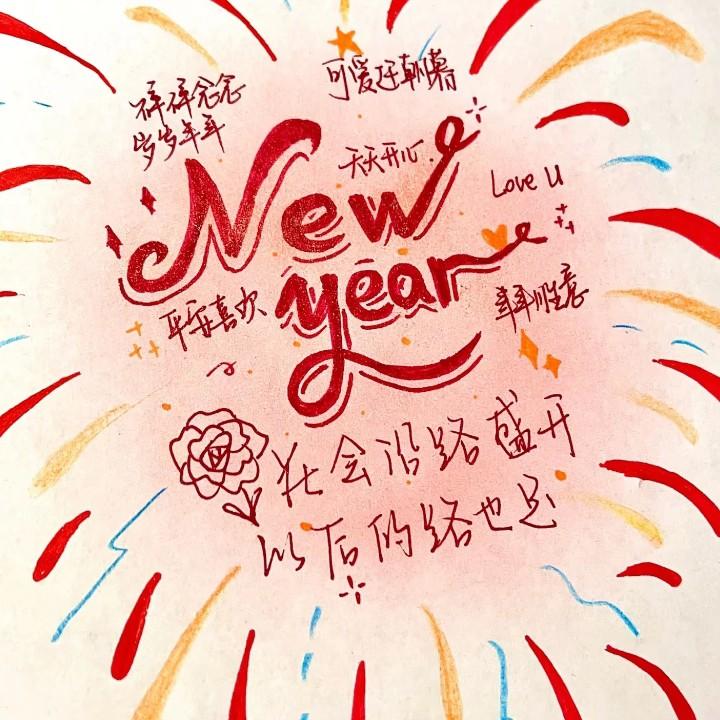 碎碎念念
岁岁年年
可爱至朝暮
天天开心
Love U
New
year
平安喜欢
年年胜意
花会沿路盛开
以后的路也是